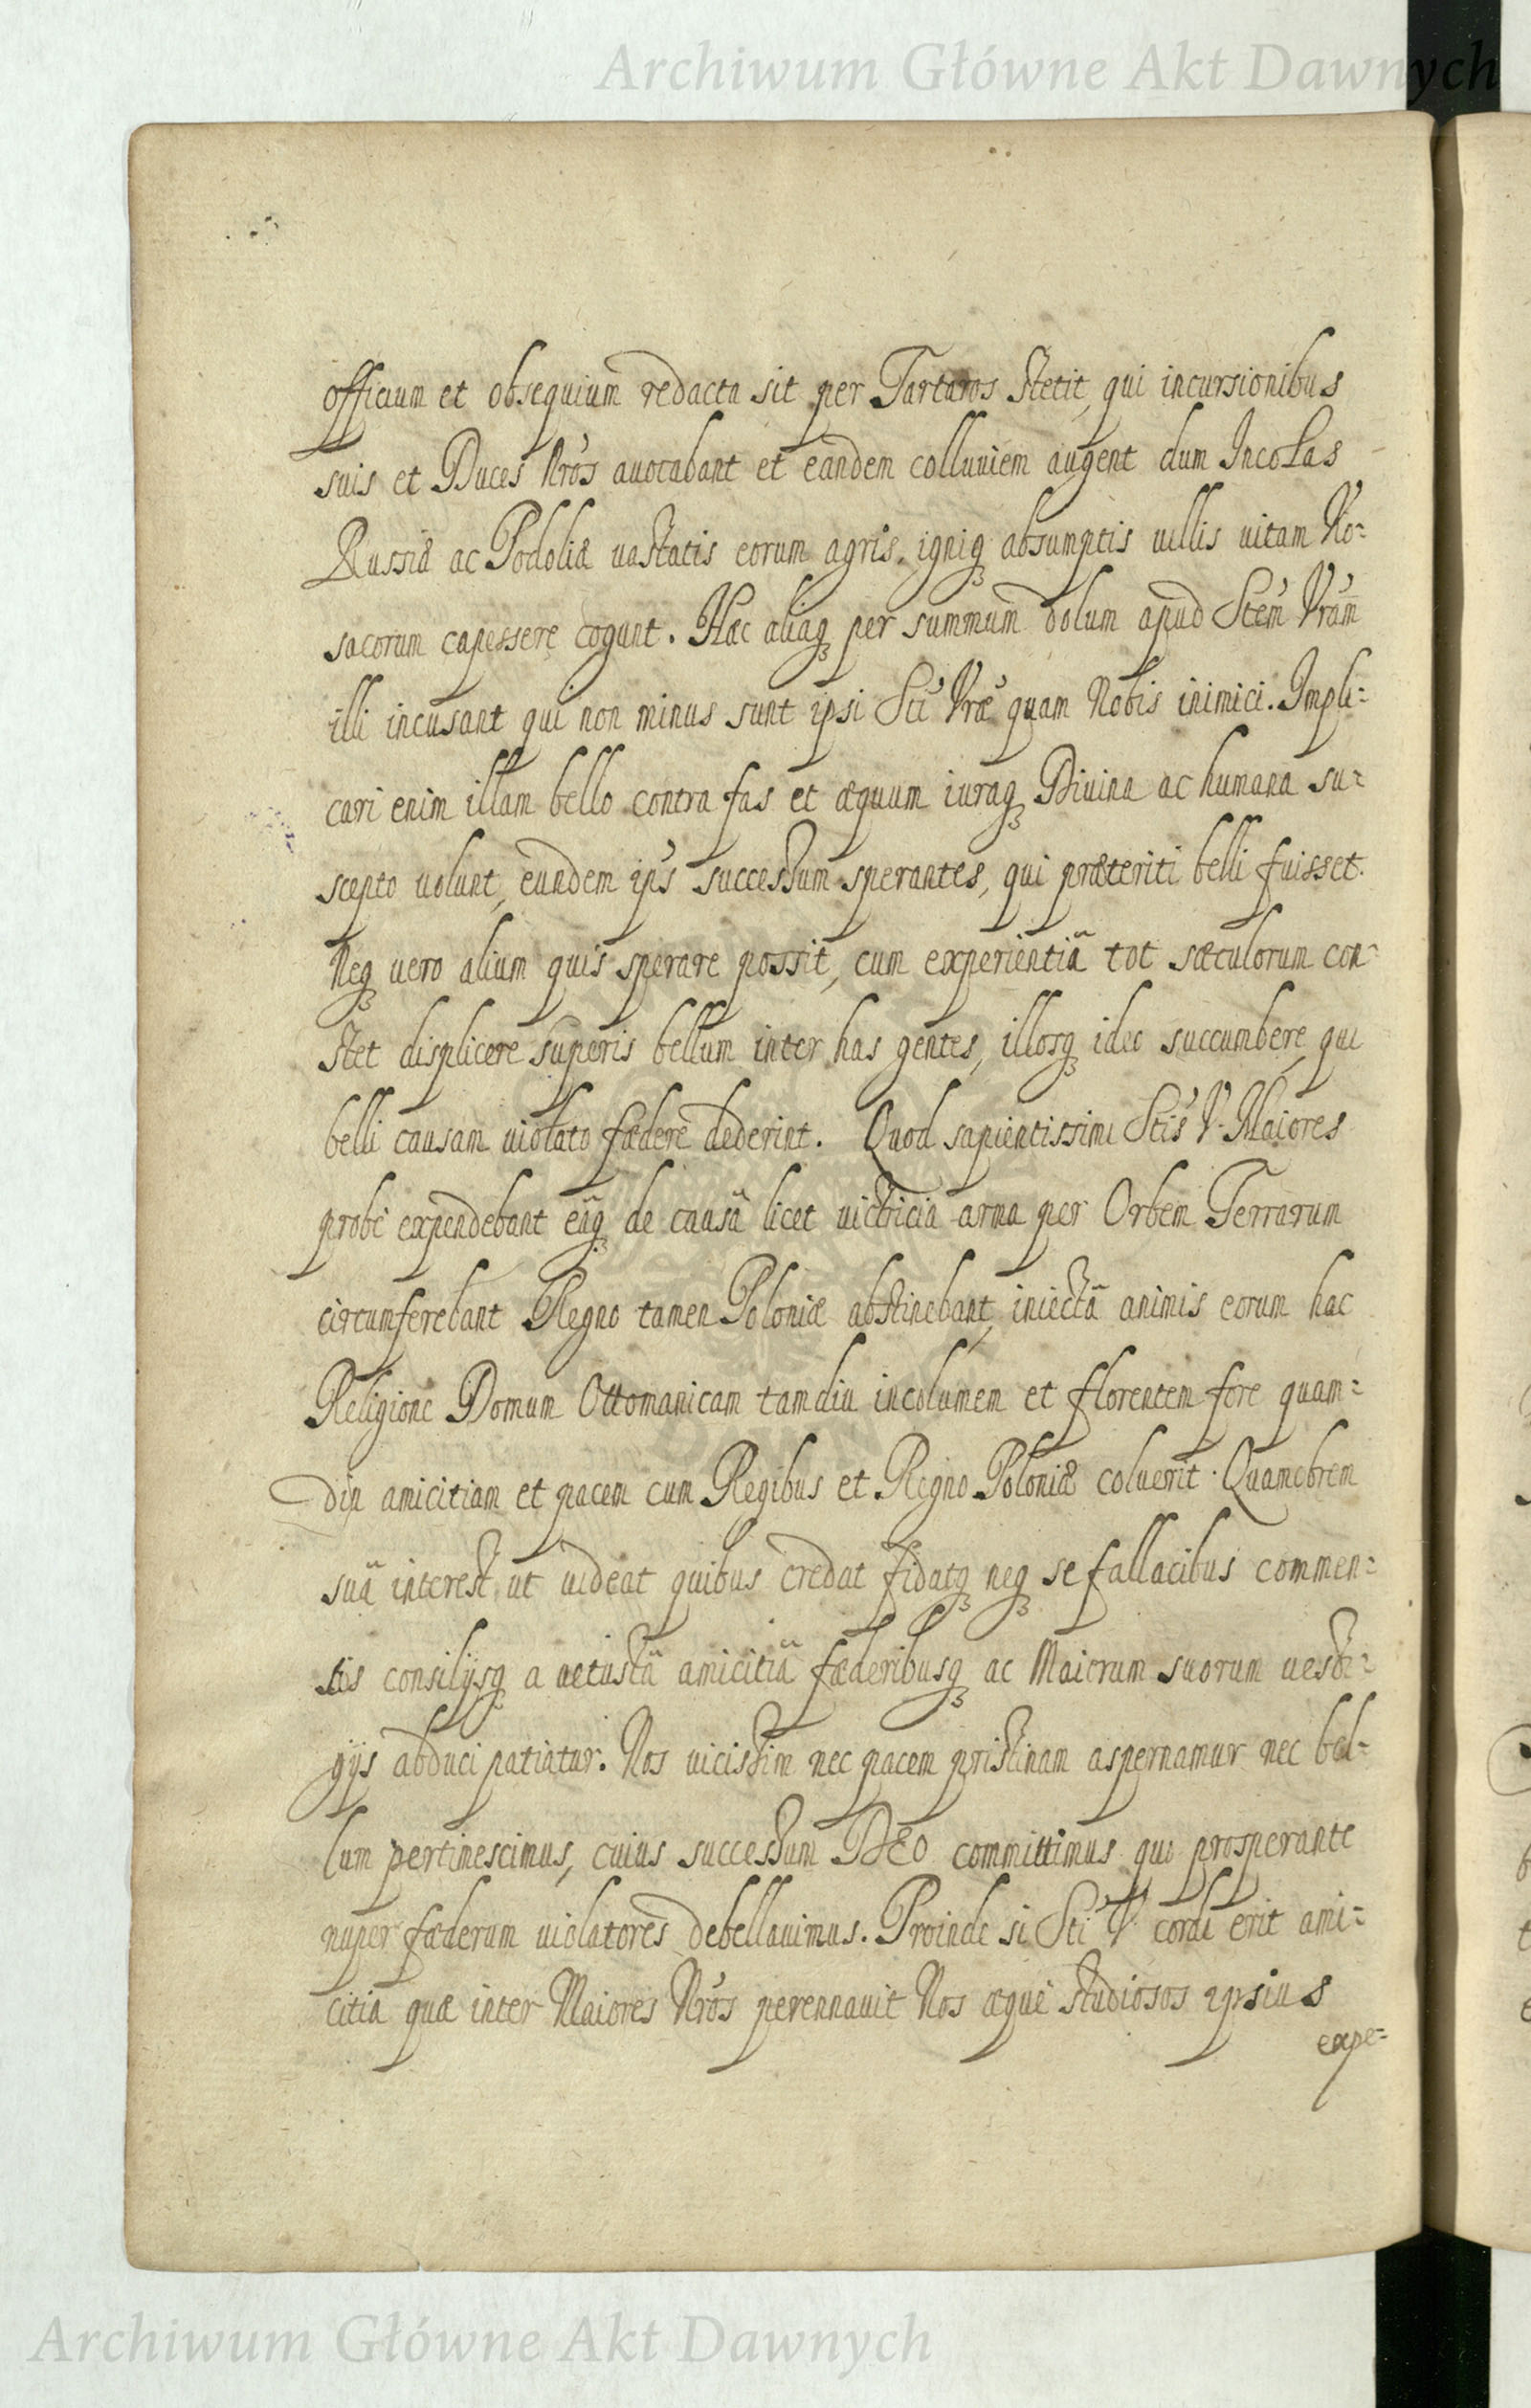 Archiwum Główne Akt Dawnych
officium et obsequium redacta sit per Tartaros stetit, qui incursionibus
suis et Duces Nros avocabant et eandem colluuiem augent dum Incolas
Russiæ ac Podoliæ vastatis eorum agris, igniq absumptis uillis uitam Ko=
sacorum capessere cogunt. Hæc aliaq per summum dolum apud Stem Vram
illi incusant qui non minus sunt ipsi Sti Vræ quam Nobis inimici. Impli=
cari enim illam bello contra fas et æquum iuraq Diuina ac humana su=
scepto uolunt, eundem ips successum sperantes, qui præteriti belli fuisset.
Neq uero alium quis sperare possit, cum experientiâ tot sæculorum con=
stet displicere Superis bellum inter has gentes, illosq ideo succumbere, qui
belli causam uiolato fædere dederint. Quod sapientissimi Stis V. Maiores
probe expendebant eâq de causâ licet uictricia arma per Orbem Terrarum
circumferebant Regno tamen Poloniæ abstinebant, iniectâ animis eorum hac
Religione Domum Ottomanicam tamdiu incolumem et florentem fore quam=
diu amicitiam et pacem cum Regibus et Regno Poloniæ coluerit. Quamobrem
suâ interest ut uideat quibus credat fidatq neq se fallacibus commen=
tis consilijsq a uetustâ amicitiâ fæderibusq ac Maiorum suorum uesti=
gijs abduci patiatur. Nos uicissim nec pacem pristinam aspernamur nec bel=
lum pertimescimus, cuius successum DEO committimus quo prosperante
nuper fæderum uiolatores debellauimus. Proinde si Sti V. cordi erit ami=
citia quæ inter Maiores Nros perennauit Nos æque studiosos ipsius
expe=
Archiwum Główne Akt Dawnych